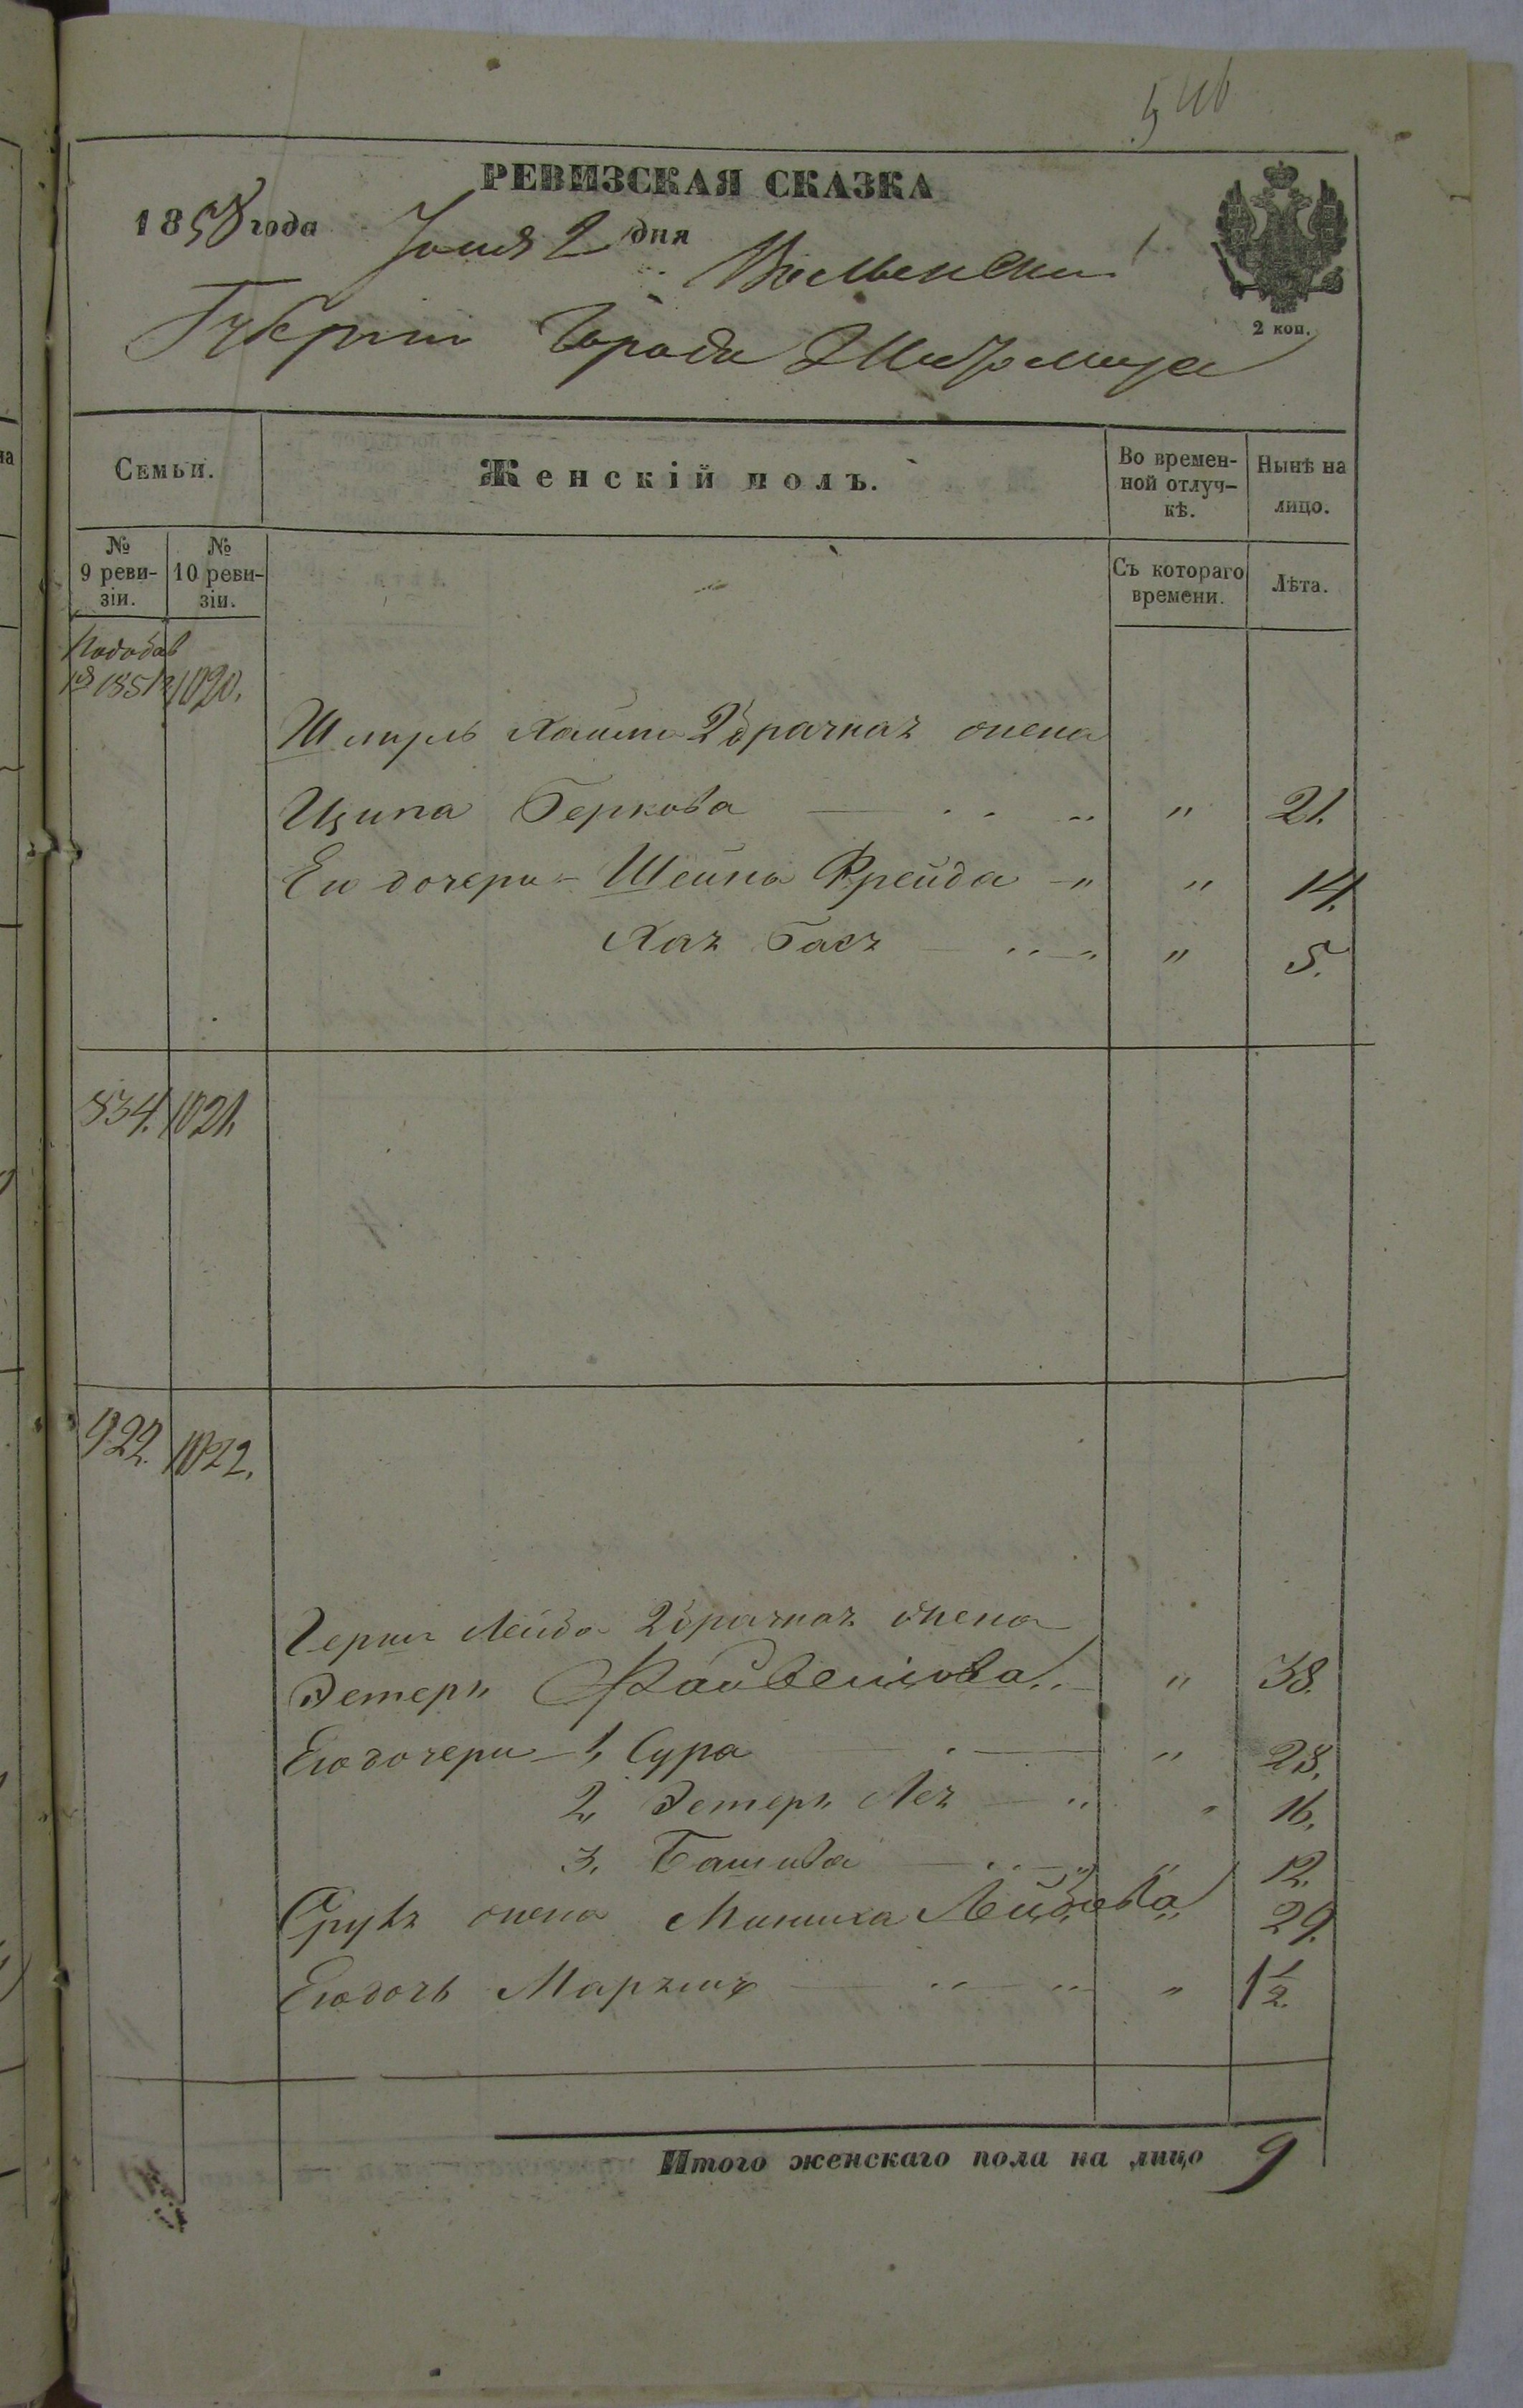 546
РЕВИЗСКАЯ СКАЗКА
1858 года Июня 2 дня Волынской
Губерніи Города Житомира
2 коп.
Семьи.
Женскій полъ.
Во времен-
ной отлуч-
кѣ.
Нынѣ на
лицо.
№
9 реви-
зіи.
№
10 реви-
зіи.
Съ котораго
времени.
Лѣта.
1851 1020.
Шмуль Хаима 2 брачная жена
Ципа Беркова " 21.
Ея дочери Шейна Фрейда " 14.
Хая Бася " 5.
834. 1021.
922. 1022.
Герша Лейба 2 брачная жена
Эстеръ Файвелиова " 38.
Его дочери 1, Сура " 23.
2, Эстеръ Лея " 16.
3, Башива " 12.
жена Лейбова 29.
Его дочь Маріямъ " 1 1/2.
Итого женскаго пола на лицо 9